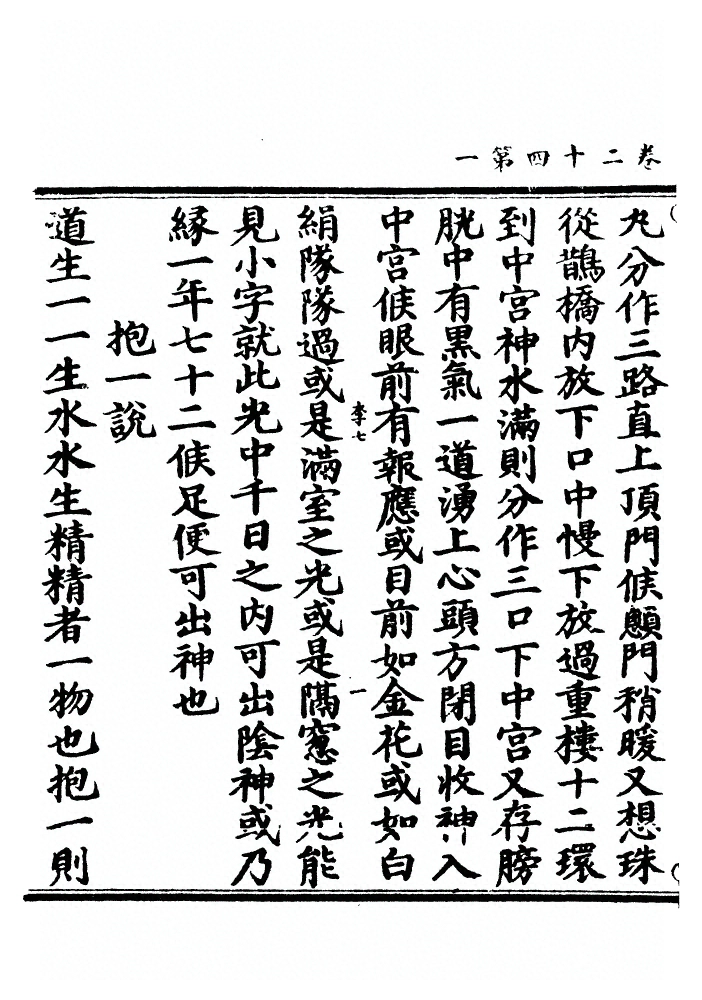 卷二十四第一
丸分作三路直上頂門候顖門稍暖又想珠
從鵲橋內放下口中慢下放過重樓十二環
到中宮神水滿則分作三口下中宮又存膀
胱中有黑氣一道湧上心頭方閉目收神入
中宮候眼前有報應或目前如金花或如白
李七
一
絹隊隊過或是滿室之光或是隔窓之光能
見小字就此光中千日之內可出陰神或乃
縁一年七十二候足便可出神也
抱一說
道生一一生水水生精精者一物也抱一則